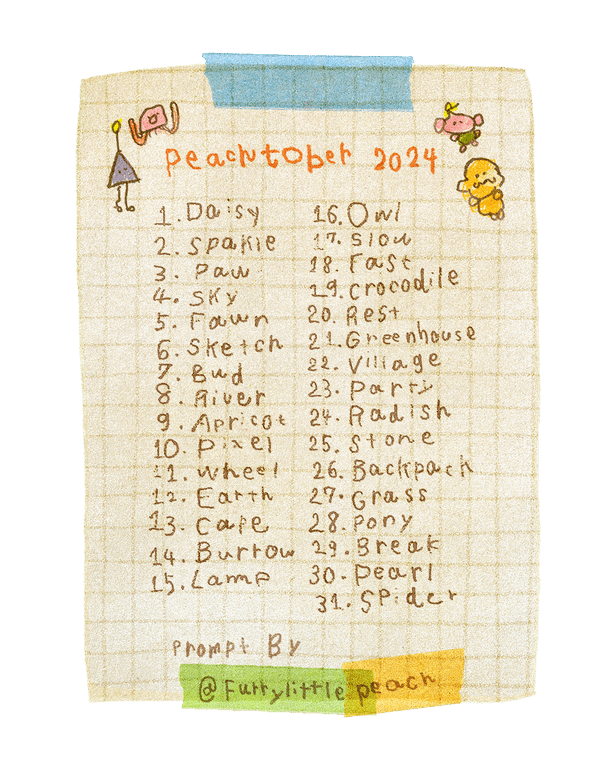 peachtober 2024
1. Daisy
2. Spakle
3. Paw
4. Sky
5. Fawn
6. Sketch
7. Bud
8. River
9. Apricot
10. Pixel
11. Wheel
12. Earth
13. Cape
14. Burrow
15. Lamp
16. Owl
17. Slow
18. Fast
19. Crocodile
20. Rest
21. Greenhouse
22. Village
23. Party
24. Radish
25. Stone
26. Backpack
27. Grass
28. Pony
29. Break
30. Pearl
31. Spider
Prompt By
@Furrylittle peach